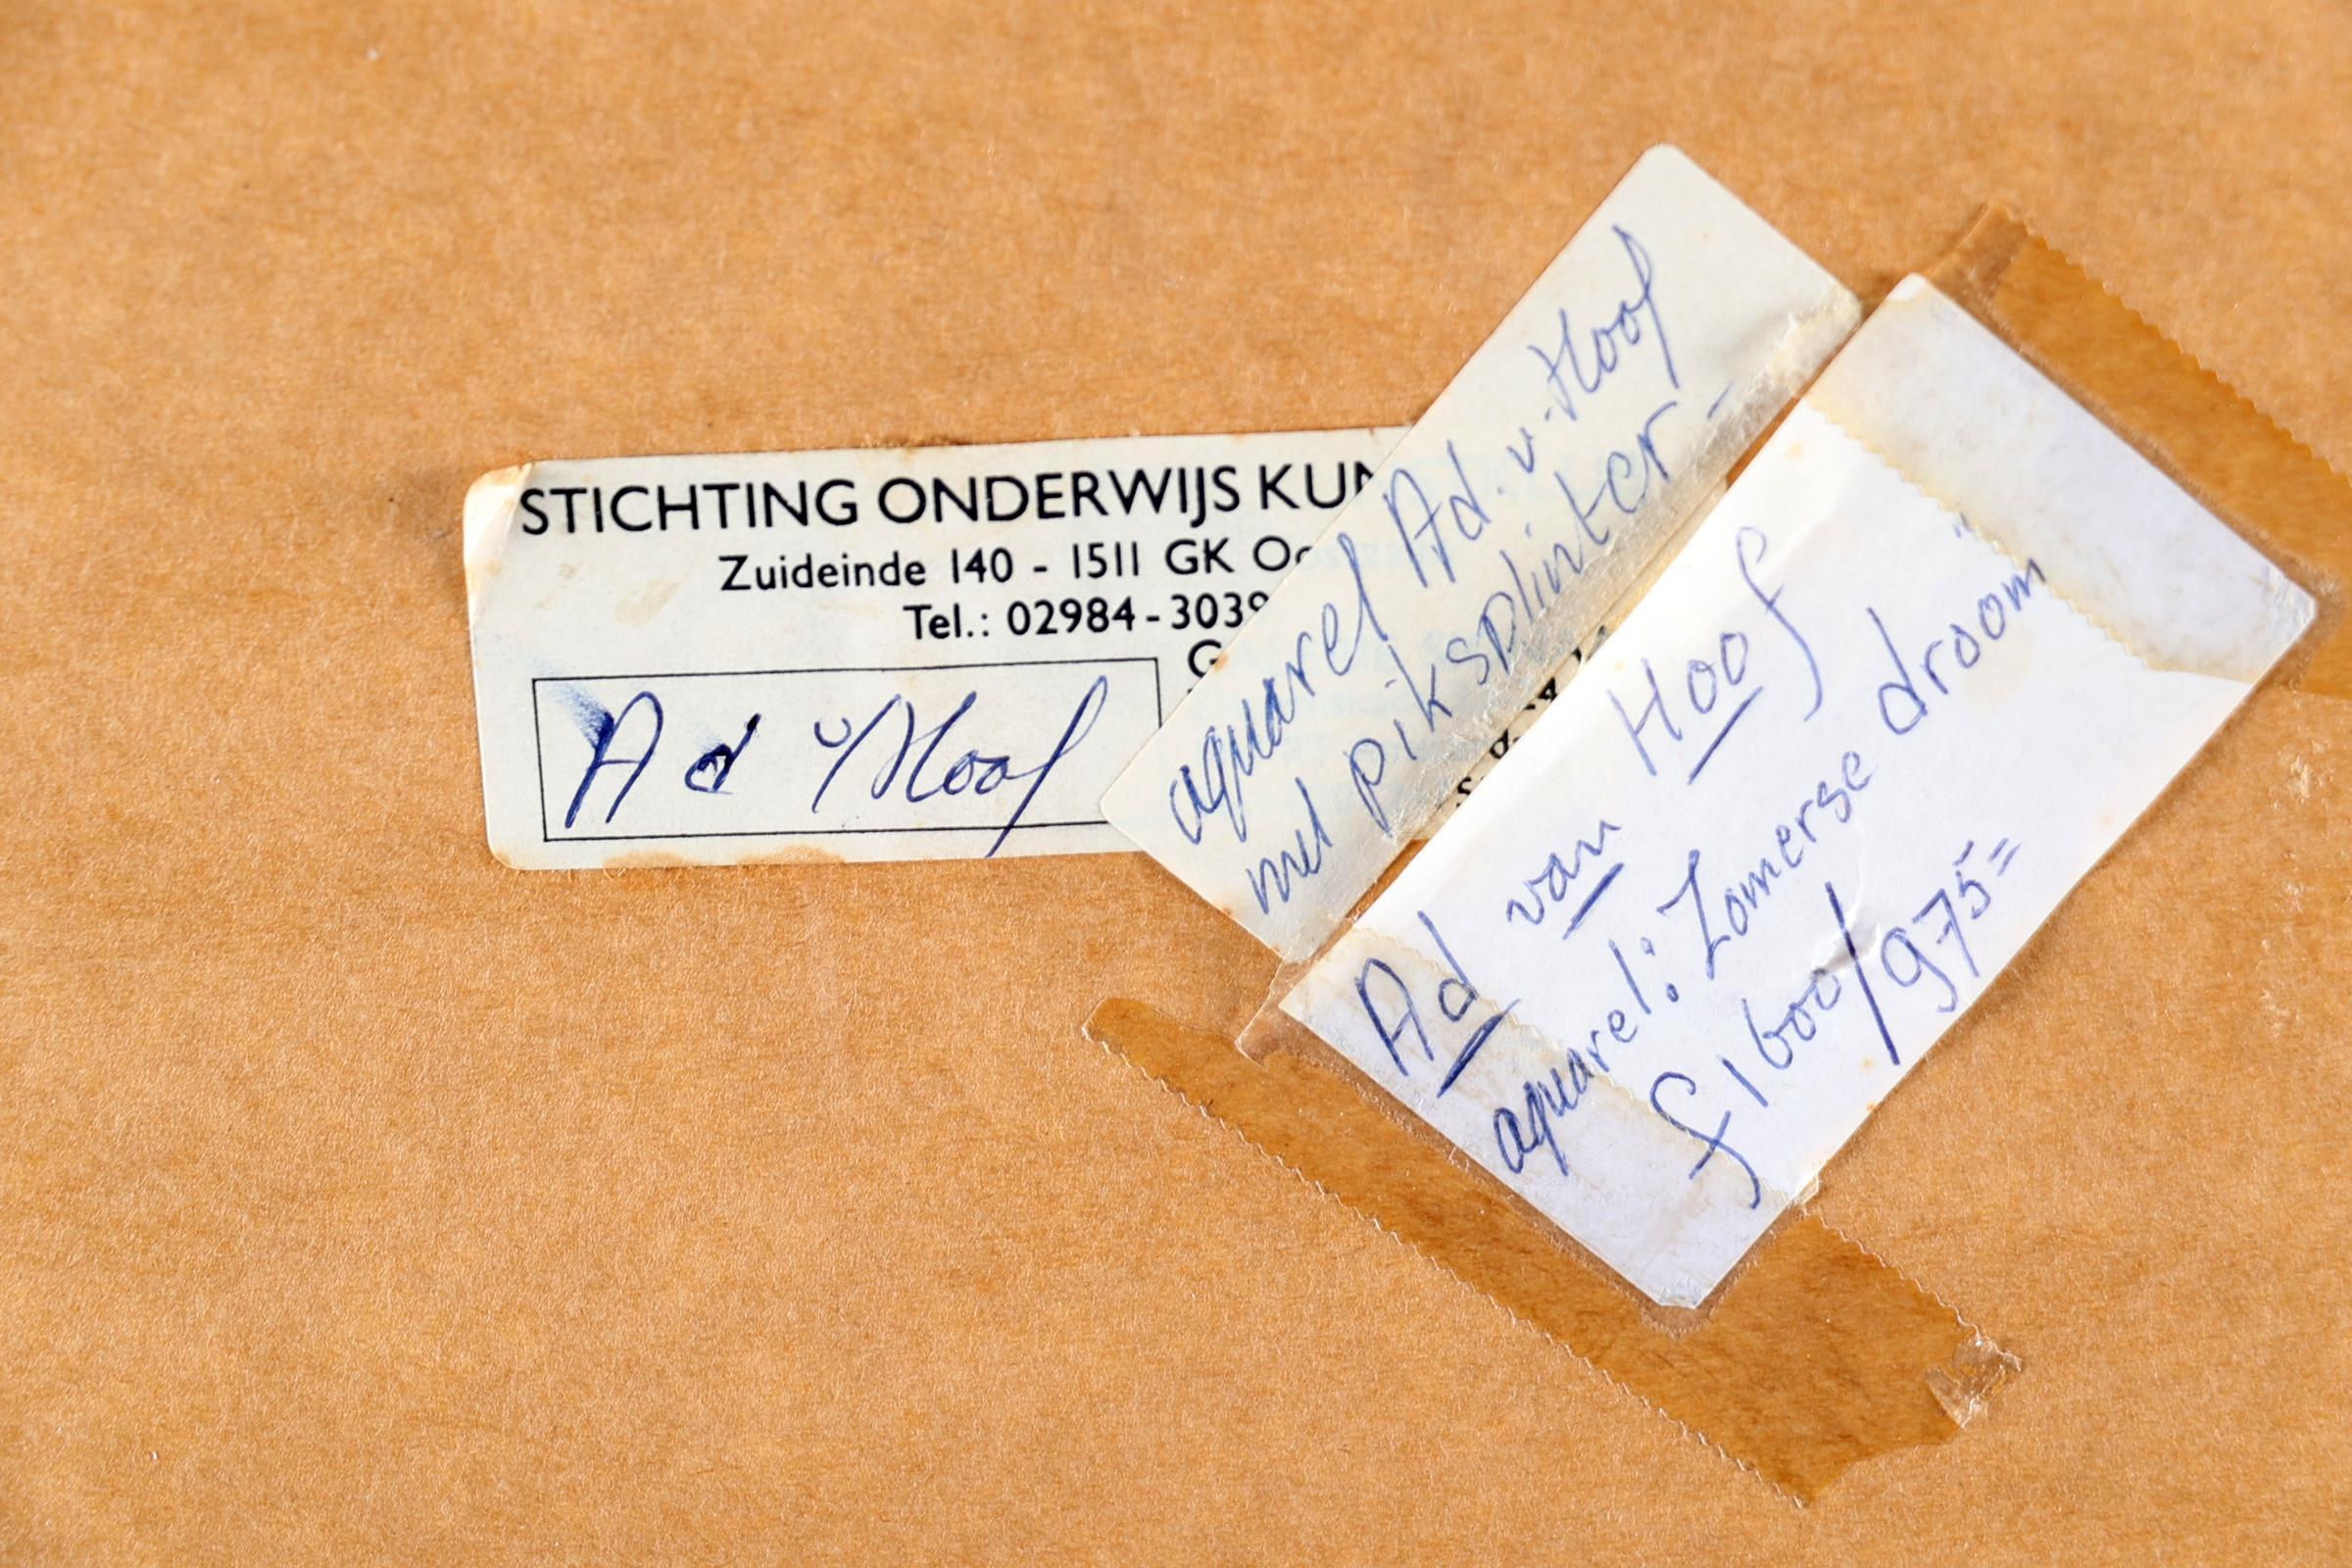 STICHTING ONDERWIJS KUN
Zuideinde 140 - 1511 GK Oo
Tel.: 02984-3039
G
Ad v Hoof
aquarel Ad. v. Hoof
met piksplinter -
Ad van Hoof
aquarel: Zomerse droom"
f 1600/975=